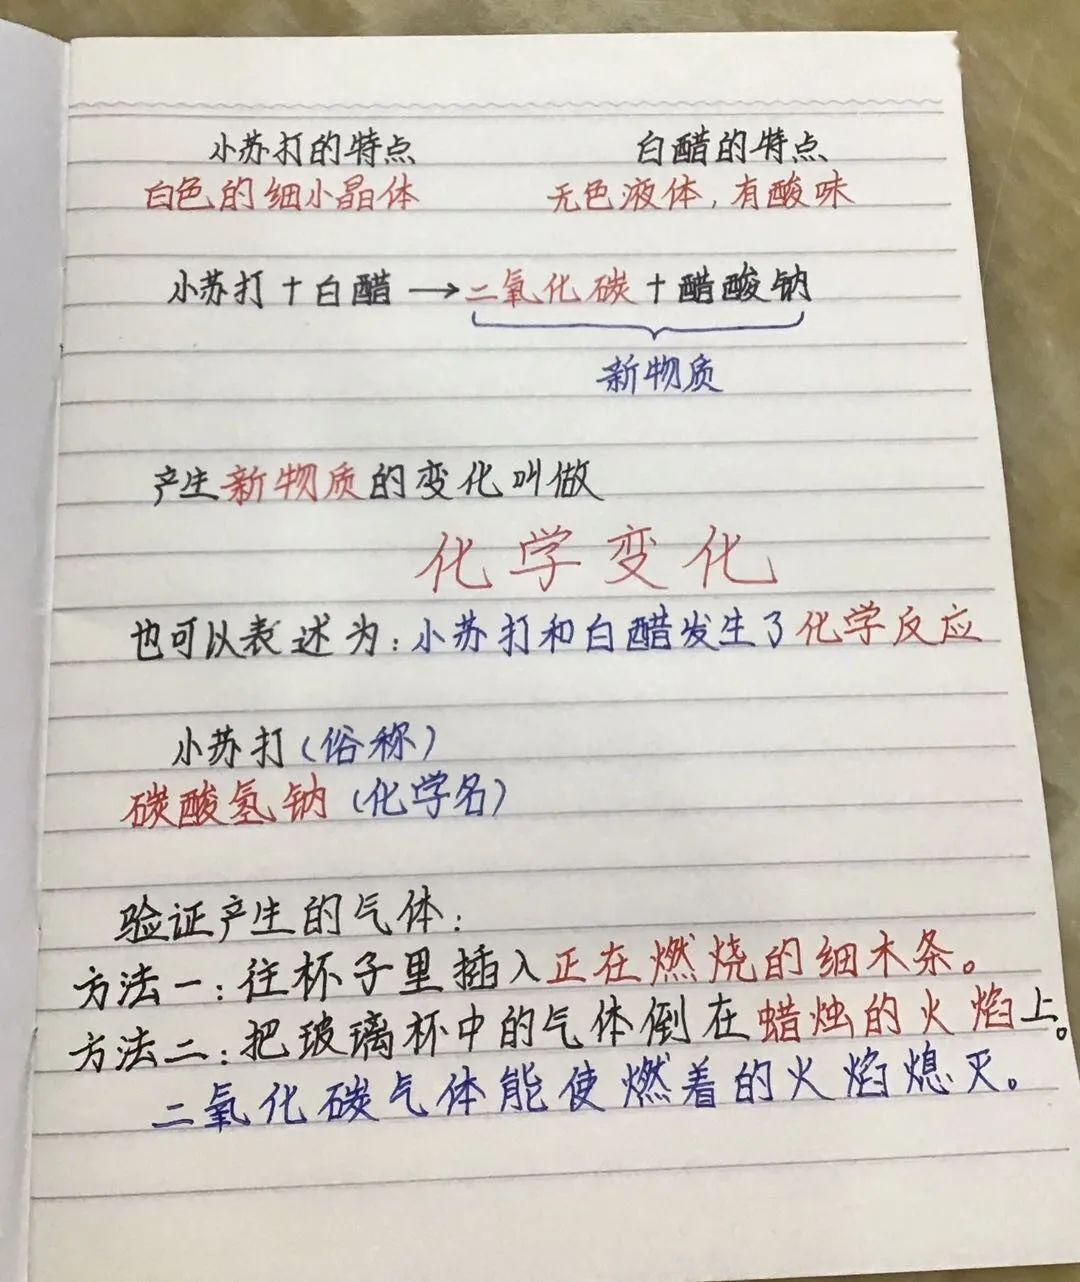 小苏打的特点 白醋的特点
白色的细小晶体 无色液体,有酸味
小苏打+白醋→二氧化碳+醋酸钠
新物质
产生新物质的变化叫做
化学变化
也可以表述为:小苏打和白醋发生了化学反应
小苏打(俗称)
碳酸氢钠(化学名)
验证产生的气体:
方法一:往杯子里插入正在燃烧的细木条。
方法二:把玻璃杯中的气体倒在蜡烛的火焰上。
二氧化碳气体能使燃着的火焰熄灭。